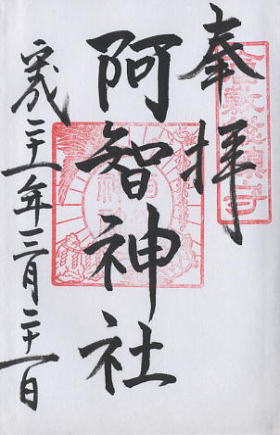 奉拝
阿智神社
平成二十一年三月二十一日